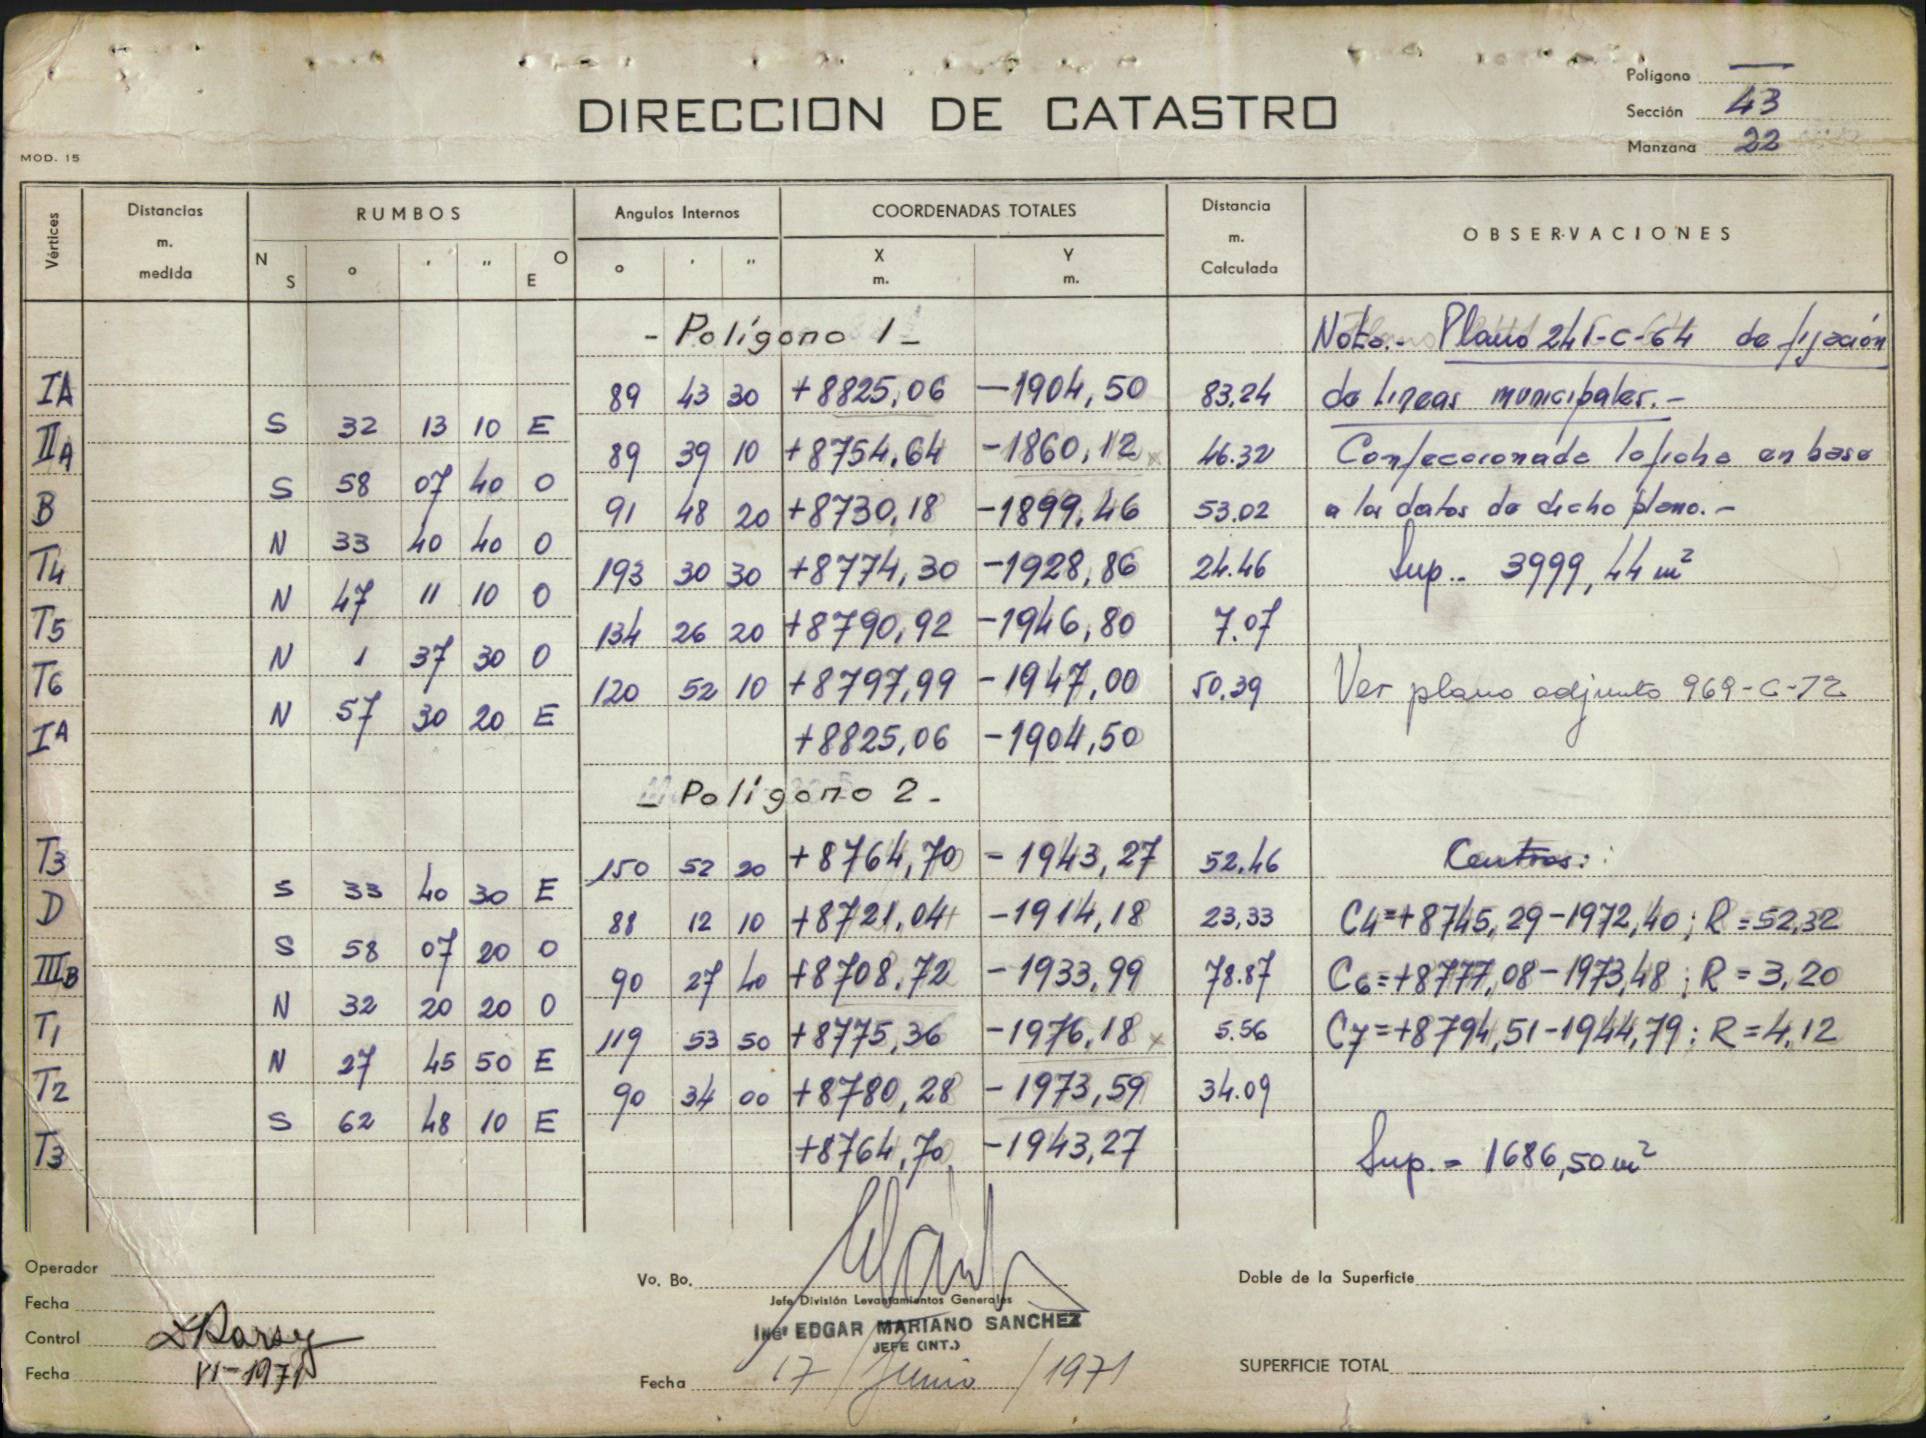 DIRECCION DE CATASTRO
Polígono —
Sección 43
Manzana 22
MOD. 15
Vértices Distancias m. medida RUMBOS N S ° ' '' O E Angulos Internos ° ' '' COORDENADAS TOTALES X m. Y m. Distancia m. Calculada OBSERVACIONES
- Polígono 1 - Nota.- Plano 241-C-64 de fijación
IA 89 43 30 +8825,06 -1904,50 83,24 de lineas municipales.-
S 32 13 10 E
IIA 89 39 10 +8754,64 -1860,12 x 46.32 Confeccionada la ficha en base
S 58 07 40 O
B 91 48 20 +8730,18 -1899,46 53.02 a los datos de dicho plano.-
N 33 40 40 O
T4 193 30 30 +8774,30 -1928,86 24.46 Sup.. 3999,44 m²
N 47 11 10 O
T5 134 26 20 +8790,92 -1946,80 7.07
N 1 37 30 O
T6 120 52 10 +8797,99 -1947,00 50.39 Ver plano adjunto 969-C-72
N 57 30 20 E
IA +8825,06 -1904,50
- Polígono 2 -
T3 150 52 20 +8764,70 -1943,27 52.46 Centros:
S 33 40 30 E
D 88 12 10 +8721,04 -1914,18 23,33 C4=+8745,29-1972,40; R=52,32
S 58 07 20 O
IIIB 90 27 40 +8708,72 -1933,99 78.87 C6=+8777,08-1973,48; R=3,20
N 32 20 20 O
T1 119 53 50 +8775,36 -1976,18 x 5.56 C7=+8794,51-1944,79: R=4,12
N 27 45 50 E
T2 90 34 00 +8780,28 -1973,59 34.09
S 62 48 10 E
T3 +8764,70 -1943,27 Sup.= 1686,50 m²
Operador
Vo. Bo.
Doble de la Superficie
Fecha
Jefe División Levantamientos Generales
Control
Ingº EDGAR MARIANO SANCHEZ
JEFE (INT.)
Fecha VI-1971
SUPERFICIE TOTAL
Fecha 17/Junio/1971